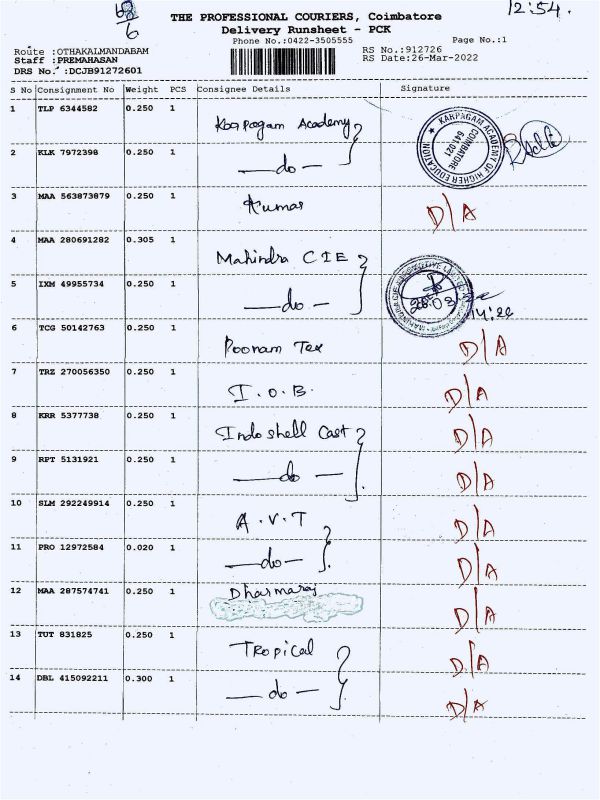 68/6
12:54.
THE PROFESSIONAL COURIERS, Coimbatore
Delivery Runsheet - PCK
Phone No.:0422-3505555 Page No.:1
Route :OTHAKALMANDABAM RS No.:912726
Staff :PREMAHASAN RS Date:26-Mar-2022
DRS No. :DCJB91272601
S No Consignment No Weight PCS Consignee Details Signature
1 TLP 6344582 0.250 1 Karpagam Academy
KARPAGAM ACADEMY OF HIGHER EDUCATION COIMBATORE 641 021
2 KLK 7972398 0.250 1 —do—
3 MAA 563873879 0.250 1 Kumar D/A
4 MAA 280691282 0.305 1 Mahindra CIE
5 IXM 49955734 0.250 1 —do— 14:26
6 TCG 50142763 0.250 1 Poonam Tex D/A
7 TRZ 270056350 0.250 1 I.O.B. D/A
8 KRR 5377738 0.250 1 Indo shell Cast D/A
9 RPT 5131921 0.250 1 —do— D/A
10 SLM 292249914 0.250 1 A.V.T D/A
11 PRO 12972584 0.020 1 —do— D/A
12 MAA 287574741 0.250 1 Dharmaraj D/A
13 TUT 831825 0.250 1 Tropical D/A
14 DBL 415092211 0.300 1 —do— D/A